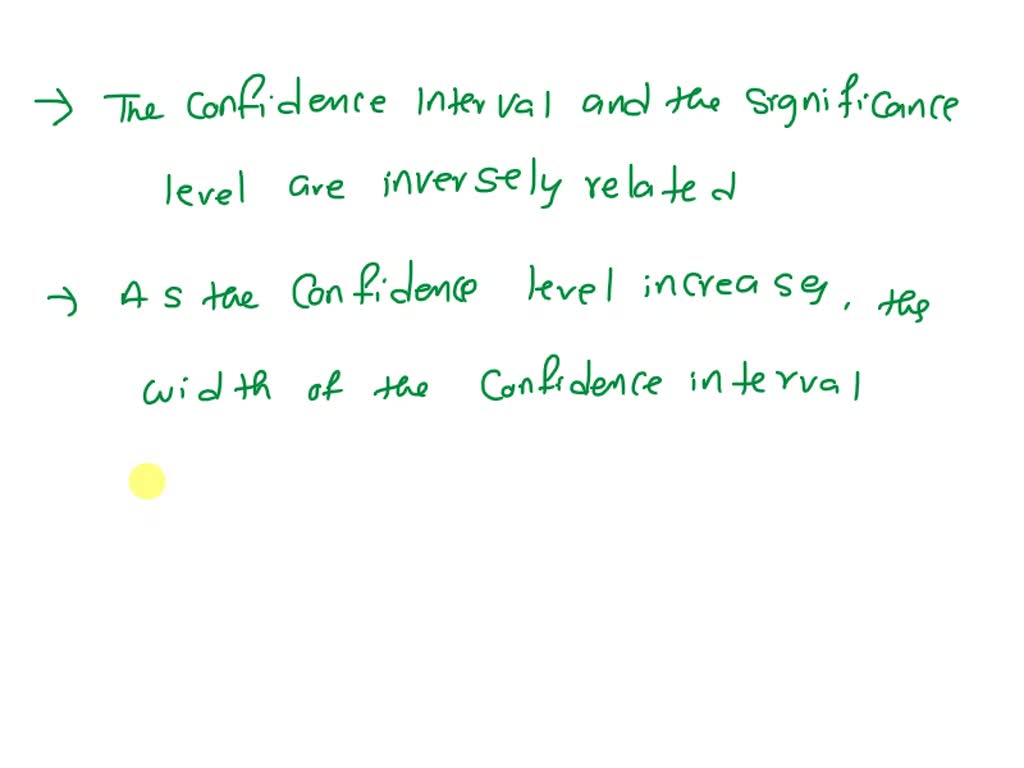 → The Confidence Interval and the significance
level are inversely related
→ As the Confidence level increases, the
width of the Confidence interval